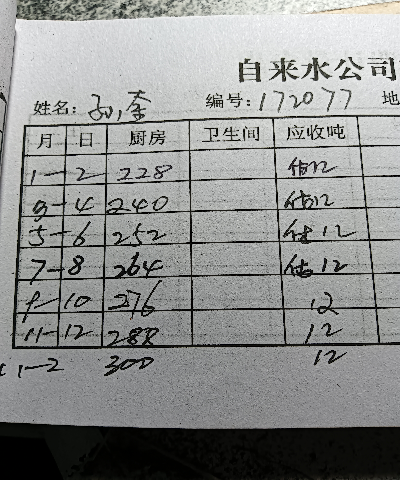 自来水公司
姓名: 编号:172077 地
月 日 厨房 卫生间 应收吨
1-2 228 估12
3-4 240 估12
5-6 252 估12
7-8 264 估12
9-10 276 12
11-12 288 12
1-2 300 12